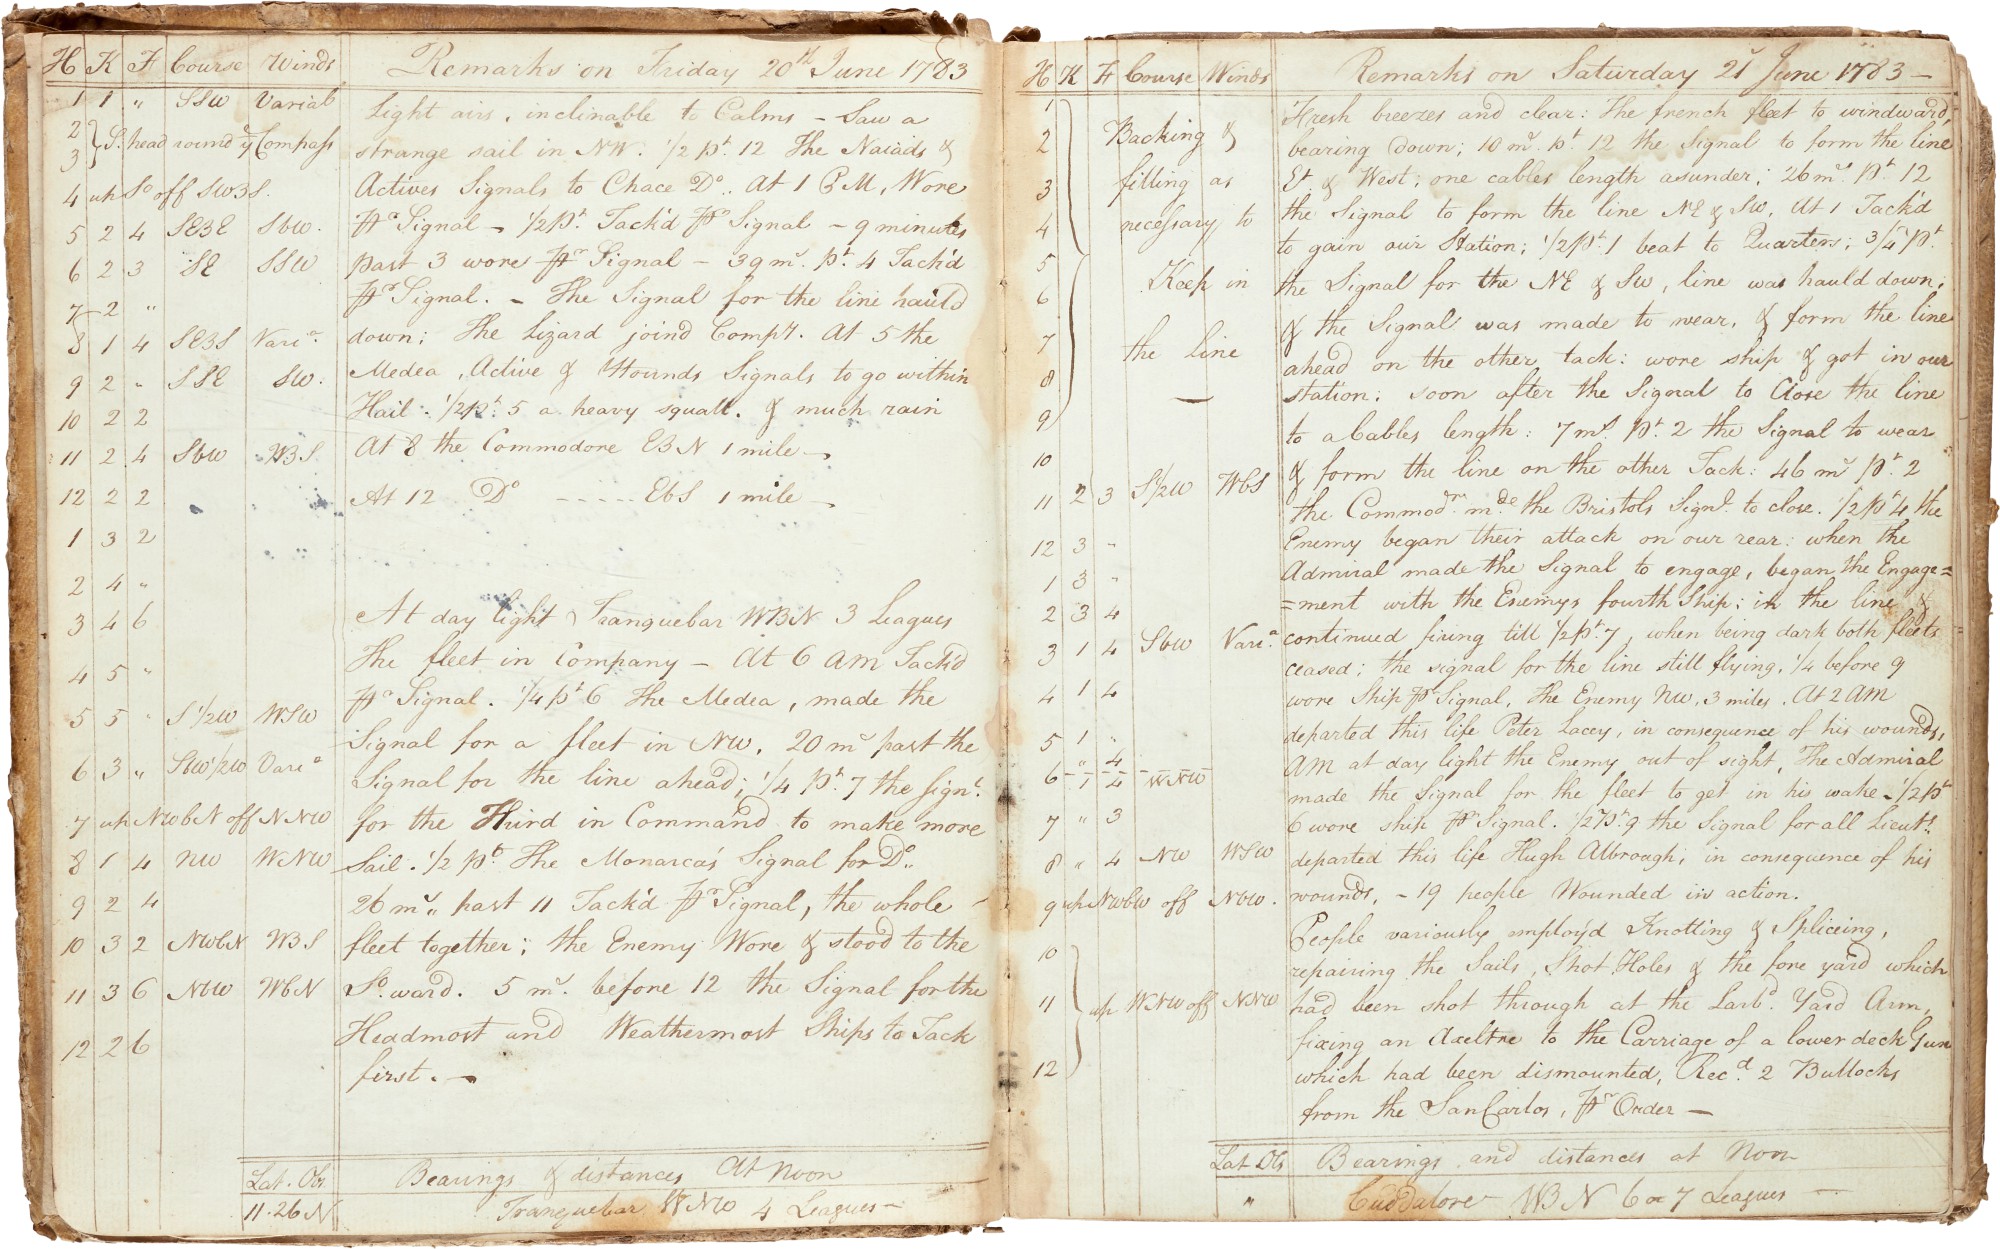 H K F Course Winds Remarks on Friday 20th June 1783
1 1 " SSW Variab Light airs, inclinable to Calms - Saw a
2
3 S. head round ye Compass strange sail in NW. 1/2 pt. 12 The Naiads &
4 up So off SW3S. Actives Signals to Chace Do. At 1 PM, Wore
5 2 4 SE3E SbW. Pr Signal - 1/2 pt. Tack'd Pr Signal - 9 minutes
6 2 3 SE SSW past 3 wore Pr Signal - 39 ms. pt. 4 Tack'd
7 2 " Pr Signal. - The Signal for the line hauld
8 1 4 SE3S Varia. down; The Lizard joind Compy. At 5 the
9 2 " SSE SW. Medea, Active & Hounds Signals to go within
10 2 2 Hail. 1/2 pt. 5 a heavy squall. & much rain
11 2 4 SbW W3S. At 8 the Commodore E3N 1 mile -
12 2 2 At 12 Do - - - - - EbS 1 mile -
1 3 2
2 4 "
3 4 6 At day light Tranquebar W3N 3 Leagues
4 5 " The fleet in Company - At 6 AM Tack'd
5 5 " S 1/2 W WSW Pr Signal. 1/4 pt 6 The Medea, made the
Signal for a fleet in NW. 20 ms past the
6 3 " SbW 1/2 W Varia Signal for the line ahead; 1/4 pt. 7 the signl.
7 up NWbN off NNW for the Third in Command to make more
8 1 4 NW WNW Sail. 1/2 pt. The Monarca's Signal for Do.
9 2 4 26 ms. past 11 Tack'd Pr Signal, the whole
10 3 2 NWbN W3S fleet together; the Enemy Wore & stood to the
11 3 6 NbW WbN So.ward. 5 ms. before 12 the Signal for the
12 2 6 Headmost and Weathermost Ships to Tack
first. -
Lat. Obs Bearings & distances At Noon
11.26 N Tranquebar WNW 4 Leagues -
H K F Course Winds Remarks on Saturday 21st June 1783 -
1 Fresh breezes and clear: The french fleet to windward,
2 Backing & bearing down; 10 ms. pt. 12 the Signal to form the line
3 filling as Et & West; one cables length asunder; 26 ms. pt. 12
the Signal to form the line NE & SW. At 1 Tack'd
4 necessary to to gain our Station; 1/2 pt. 1 beat to Quarters; 3/4 pt.
5 Keep in the Signal for the NE & SW, line was hauld down;
6 & the Signal was made to wear, & form the line
7 the line ahead on the other tack: wore ship & got in our
8 - station: soon after the Signal to Close the line
9 to a Cables length: 7 ms. pt. 2 the Signal to wear
10 & form the line on the other Tack: 46 ms pt. 2
11 2 3 S 1/2 W WbS the Commodr. mde the Bristols Signl. to close. 1/2 pt 4 the
12 3 " Enemy began their attack on our rear: when the
1 3 " Admiral made the Signal to engage, began the Engage=
2 3 4 =ment with the Enemys fourth Ship; in the line &
3 1 4 SbW Varia. continued firing till 1/2 pt. 7, when being dark both fleets
ceased; the signal for the line still flying. 1/4 before 9
4 1 4 wore Ship Pr Signal, the Enemy NW, 3 miles. At 2 AM
5 1 " departed this life Peter Lacey, in consequence of his wounds,
" 4 AM at day light the Enemy out of sight, The Admiral
6 1 4 WNW made the Signal for the fleet to get in his wake - 1/2 pt
7 " 3 6 wore ship Pr Signal. 1/2 Pt. 9 the Signal for all Lieuts.
8 " 4 NW WSW departed this life Hugh Albroagh; in consequence of his
9 up NWbW off NbW. wounds, - 19 people Wounded in action.
People variously employ'd Knotting & Spliceing,
10 repairing the Sails, Shot Holes & the fore yard which
11 up WNW off NNW had been shot through at the Larbd. Yard Arm,
fixing an Axeltre to the Carriage of a lower deck Gun
12 which had been dismounted, Recd. 2 Bullocks
from the SanCarlos, Pr Order -
Lat Obs Bearings and distances at Noon
" Cuddalore W3N 6 or 7 Leagues -